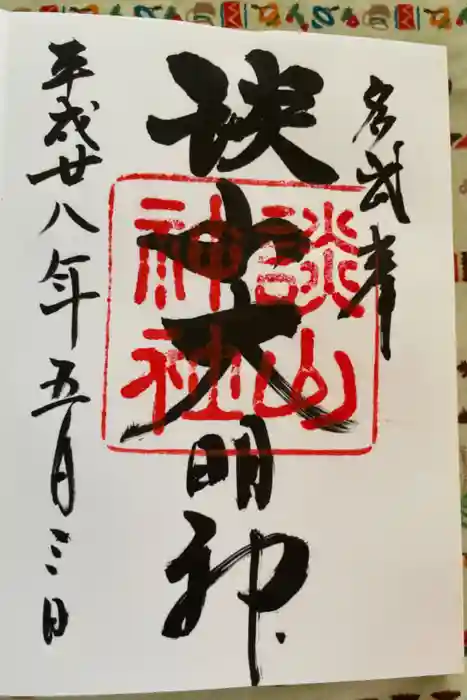 多武峯
談山大明神
談山神社
平成廿八年五月三日